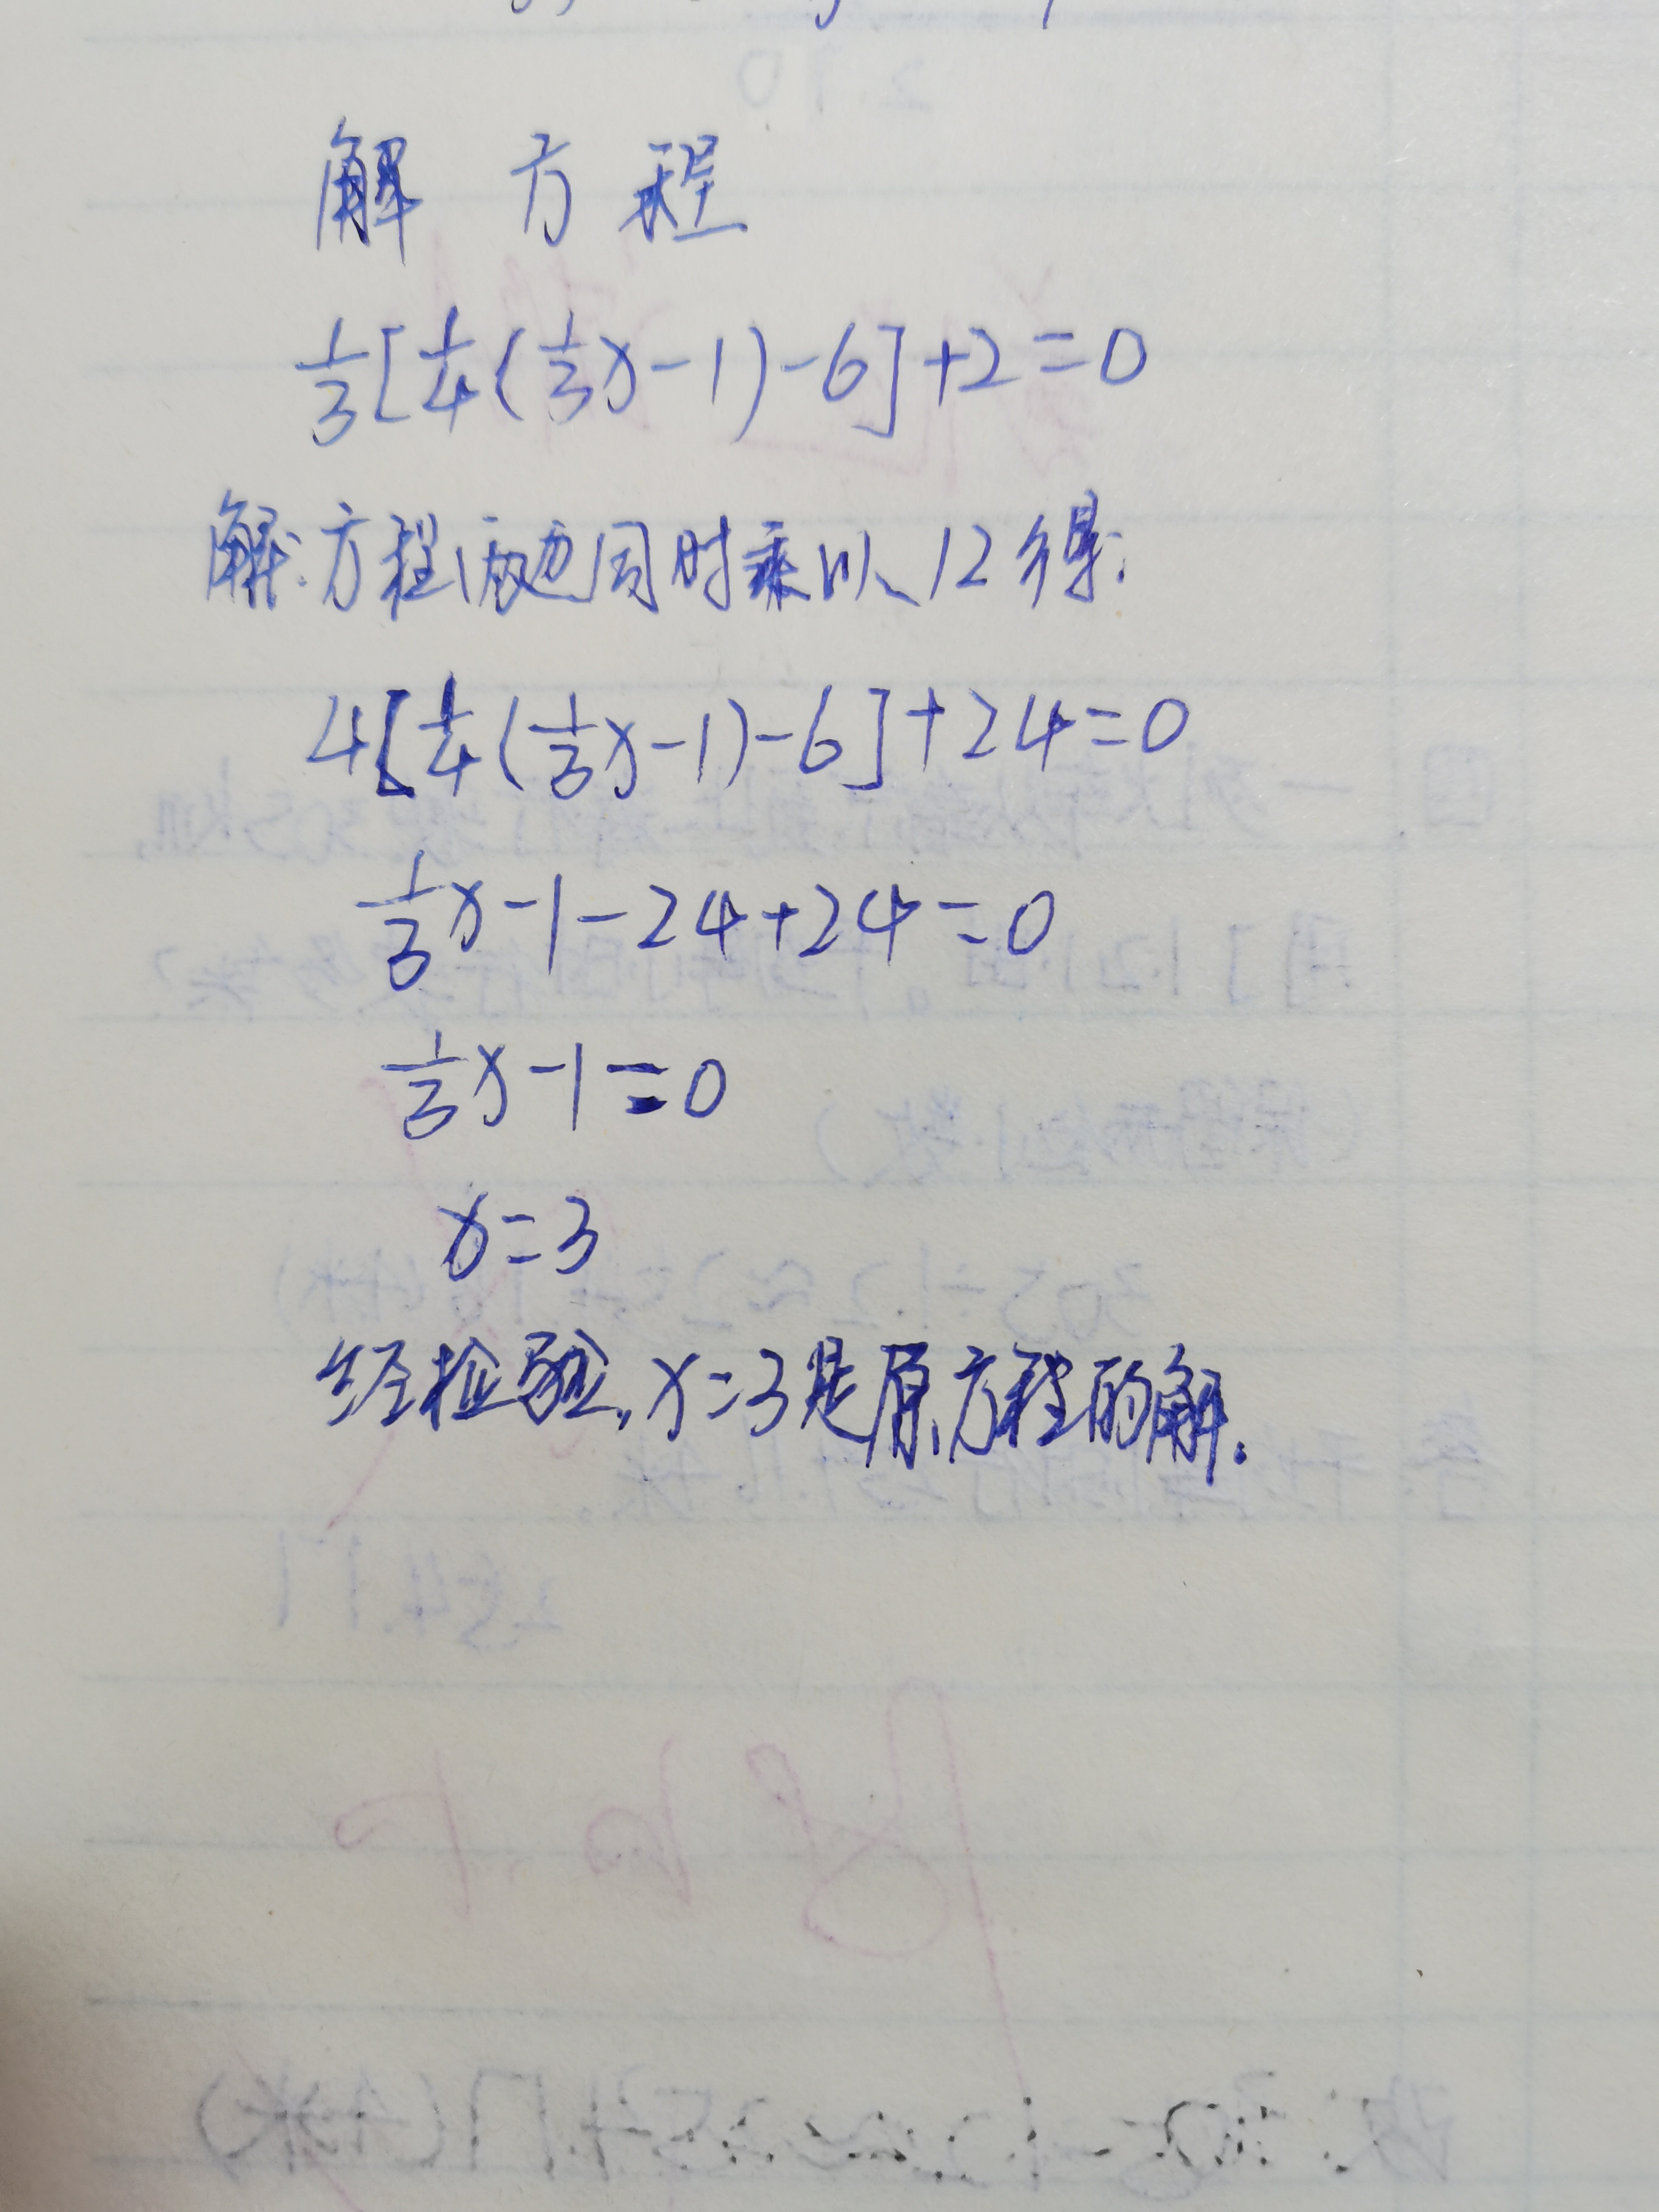 解 方 程
1/3[1/4(1/3x-1)-6]+2=0
解:方程两边同时乘以12得:
4[1/4(1/3x-1)-6]+24=0
1/3x-1-24+24=0
1/3x-1=0
x=3
经检验,x=3是原方程的解.